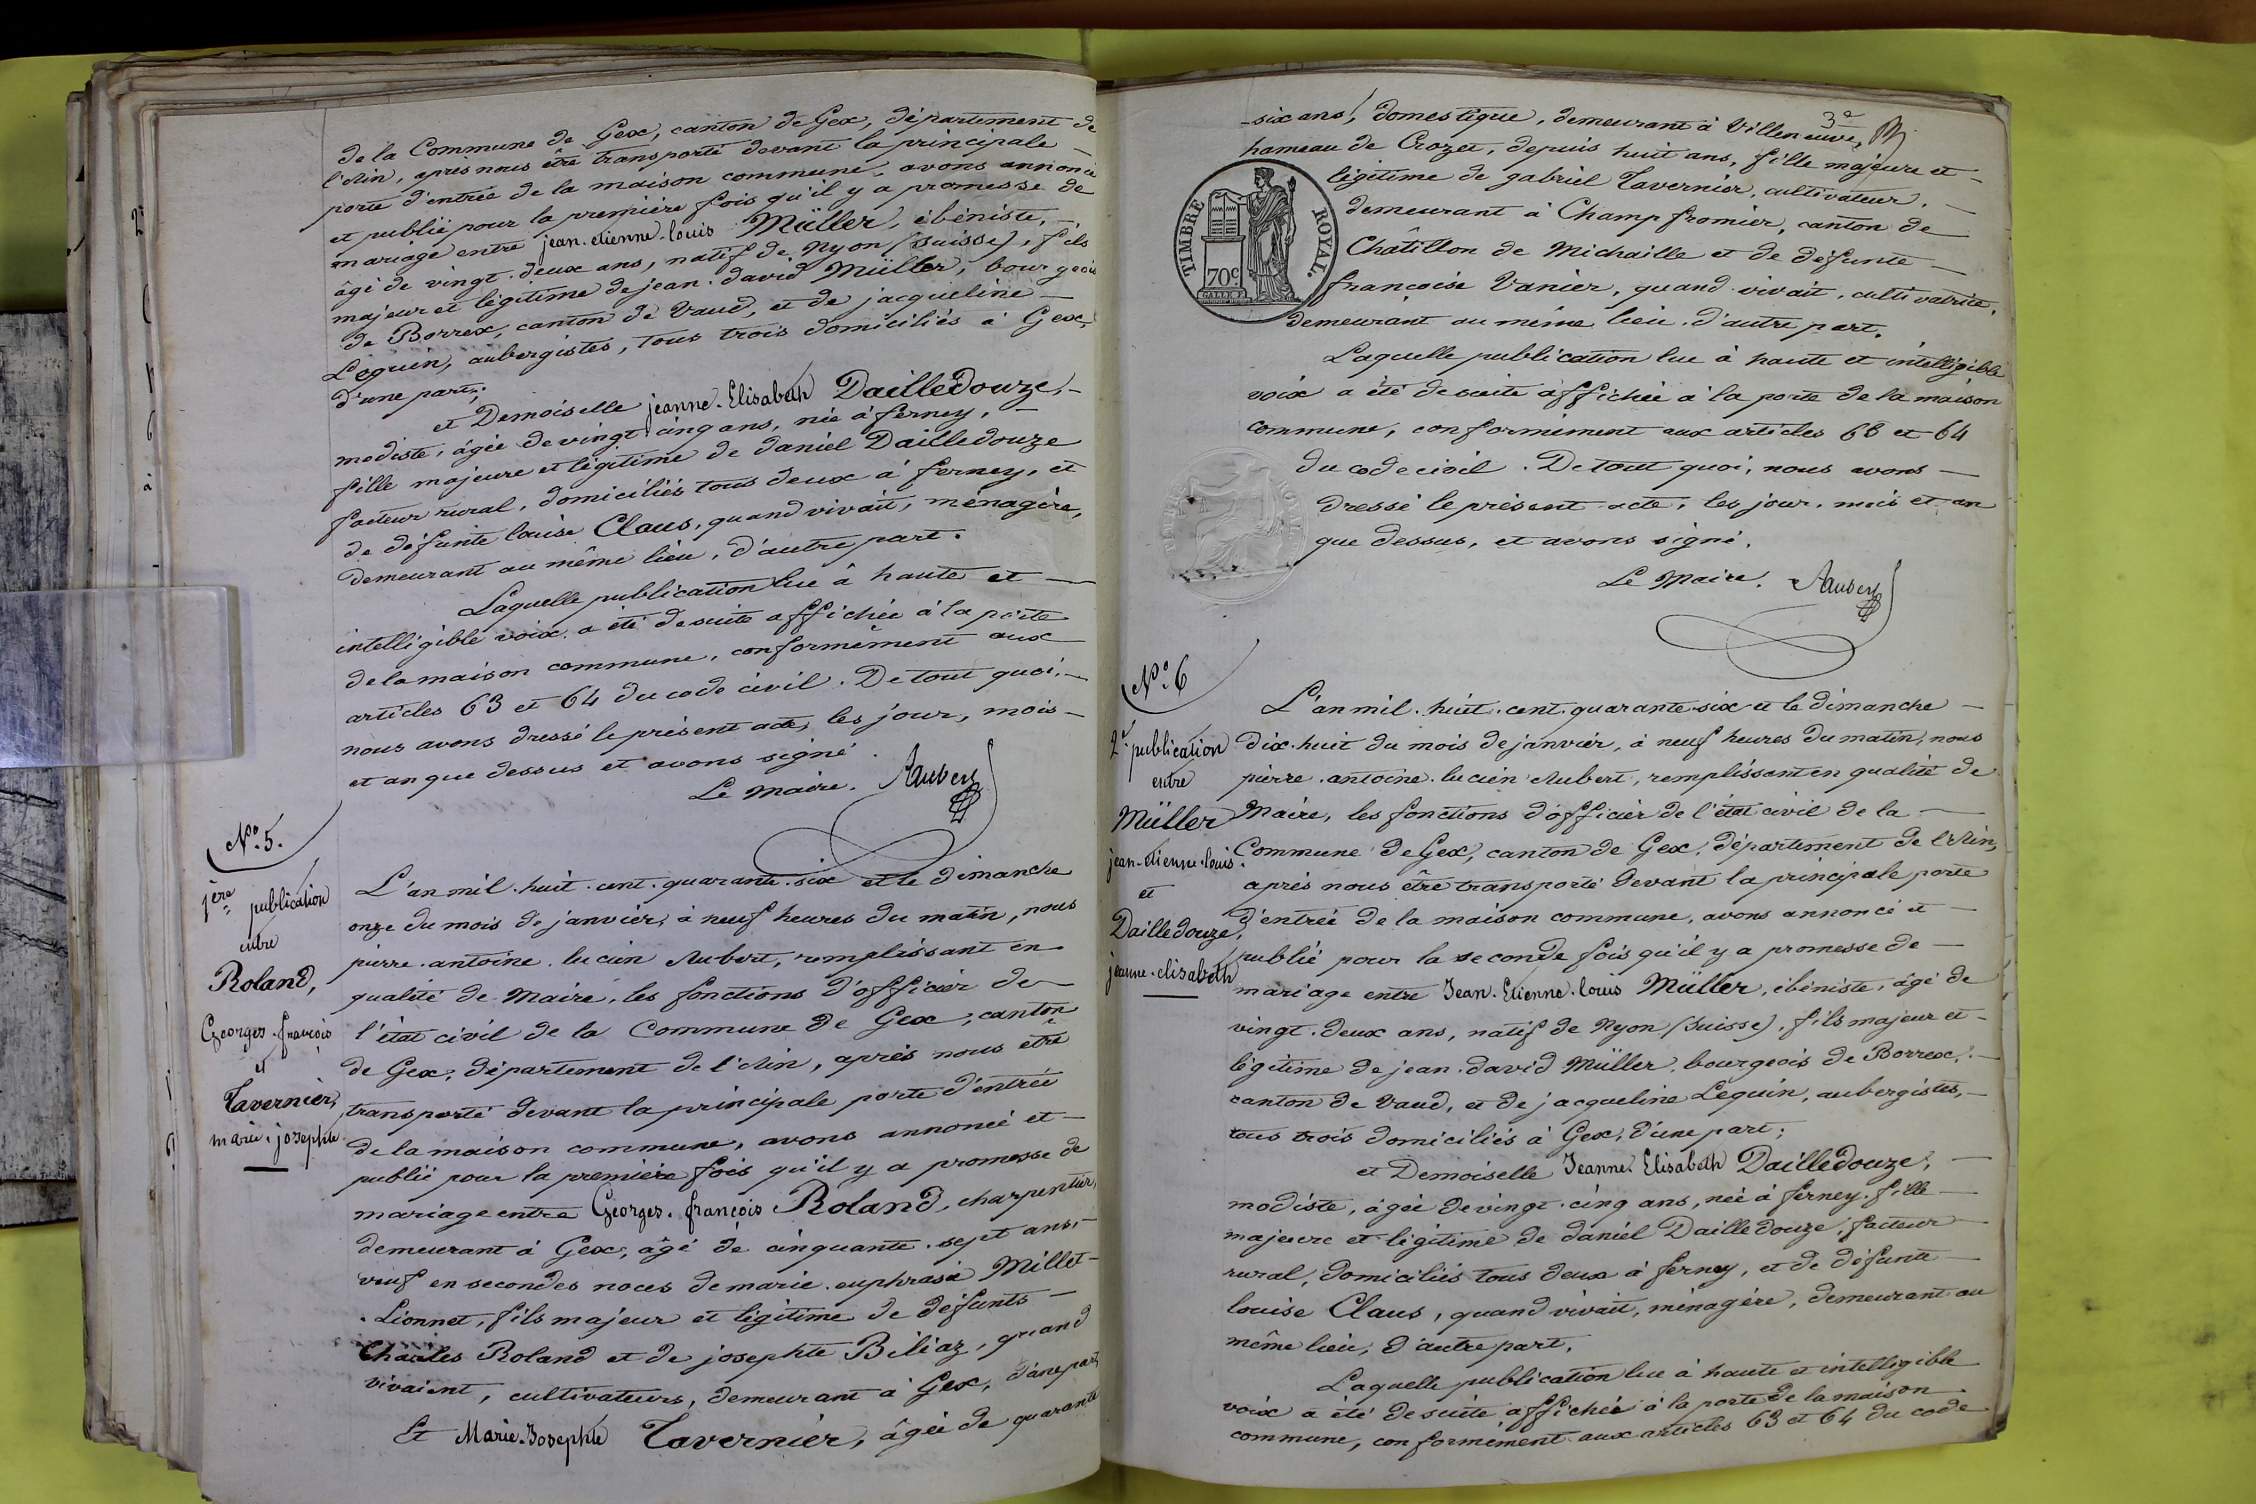 de la Commune de Gex, canton de Gex, département de
l'Ain, après nous être transporté devant la principale —
porte d'entrée de la maison commune, avons annoncé
et publié pour la première fois qu'il y a promesse de
mariage entre jean-etienne-louis Müller, ébéniste, —
âgé de vingt-deux ans, natif de Nyon (Suisse), fils
majeur et légitime de jean-david Müller, bourgeois
de Borrex, canton de Vaud, et de jacqueline —
Lequin, aubergistes, tous trois domiciliés à Gex,
d'une part;
et Demoiselle jeanne-Elisabeth Dailledouze, —
modiste, âgée de vingt cinq ans, née à ferney, —
fille majeure et légitime de daniel Dailledouze
facteur rural, domiciliés tous deux à ferney, et
de défunte louise Claus, quand vivait, ménagère,
demeurant au même lieu, d'autre part.
Laquelle publication lue à haute et —
intelligible voix a été de suite affichée à la porte
de la maison commune, conformément aux
articles 63 et 64 du code civil. De tout quoi, —
nous avons dressé le présent acte, les jour, mois —
et an que dessus et avons signé.
Le Maire. Aubert
N.° 5.
1ère publication
entre
Roland,
Georges-françois
et
Tavernier,
marie-josephte
L'an mil-huit-cent-quarante-six et le dimanche
onze du mois de janvier, à neuf heures du matin, nous
pierre-antoine-lucien Aubert, remplissant en
qualité de Maire, les fonctions d'officier de —
l'état civil de la Commune de Gex, canton
de Gex, département de l'Ain, après nous être
transporté devant la principale porte d'entrée
de la maison commune, avons annoncé et —
publié pour la première fois qu'il y a promesse de
mariage entre Georges-françois Roland, charpentier,
demeurant à Gex, âgé de cinquante-sept ans, —
veuf en secondes noces de marie-euphrasie Millet-
-Lionnet, fils majeur et légitime de défunts —
Charles Roland et de josephte Biliaz, quand
vivaient, cultivateurs, demeurant à Gex, d'une part,
Et Marie-Josephte Tavernier, âgée de quarante
3e
-six ans, domestique, demeurant à Villeneuve,
hameau de Crozet, depuis huit ans, fille majeure et —
légitime de gabriel Tavernier, cultivateur, —
demeurant à Champfromier, canton de
Châtillon de Michaille et de défunte —
françoise Vanier, quand vivait, cultivatrice,
demeurant au même lieu d'autre part.
TIMBRE ROYAL.
70c
Laquelle publication lue à haute et intelligible
voix a été de suite affichée à la porte de la maison
commune, conformément aux articles 63 et 64
du code civil. De tout quoi, nous avons —
dressé le présent acte, les jour, mois et an
que dessus, et avons signé.
Le Maire. Aubert
N.° 6
2e publication
entre
Müller
jean-etienne-louis.
et
Dailledouze,
jeanne-elisabeth
L'an mil-huit-cent-quarante-six et le dimanche —
dix-huit du mois de janvier, à neuf heures du matin, nous
pierre-antoine-lucien Aubert, remplissant en qualité de
Maire, les fonctions d'officier de l'état civil de la —
Commune de Gex, canton de Gex, département de l'Ain,
après nous être transporté devant la principale porte
d'entrée de la maison commune, avons annoncé et —
publié pour la seconde fois qu'il y a promesse de —
mariage entre Jean-Etienne-louis Müller, ébéniste, âgé de
vingt-deux ans, natif de Nyon (Suisse), fils majeur et —
légitime de jean-david Müller, bourgeois de Borrex, —
canton de Vaud, et de jacqueline Lequin, aubergistes, —
tous trois domiciliés à Gex, d'une part;
et Demoiselle Jeanne-Elisabeth Dailledouze, —
modiste, âgée de vingt-cinq ans, née à ferney, fille —
majeure et légitime de daniel Dailledouze, facteur —
rural, domiciliés tous deux à ferney, et de défunte —
louise Claus, quand vivait, ménagère, demeurant au
même lieu, d'autre part.
Laquelle publication lue à haute et intelligible
voix a été de suite affichée à la porte de la maison
commune, conformément aux articles 63 et 64 du code